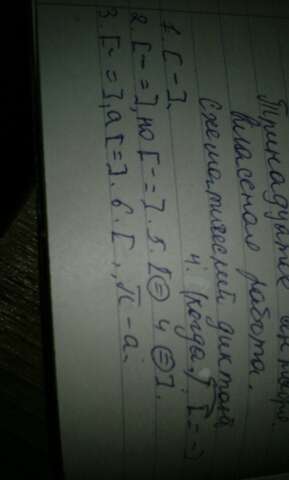 Тринадцатое января.
Классная работа.
Схематический диктант
1. [ - ]. 4. (когда...), [ = - ]
2. [ - = ], но [ - = ]. 5. [ ⊜ и ⊜ ].
3. [ - = ], а [ = ]. 6. [ „П - а.